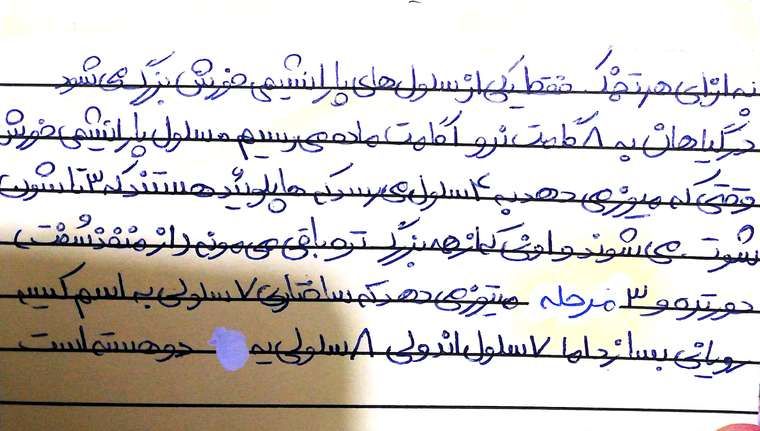 نه ازای هر تخمک فقط یکی از سلول های پارانشیمی خورش بزرگ می شود
در گیاهان به ۸ گامت نر و ۱ گامت ماده می رسیم سلول پارانشیمی خورش
وقتی که میوز می دهد به ۴ سلول می رسد که هاپلوئید هستند که ۳ تا شون
شوت می شوند و اونی که از همه بزرگ تره باقی می مونه (از منفذ سُفت)
دورتره و ۳ مرحله میتوز می دهد که ساختاری ۷ سلولی به اسم کیسه
رویانی بسازد اما ۷ سلول اند ولی ۸ سلولی یه دو هسته است